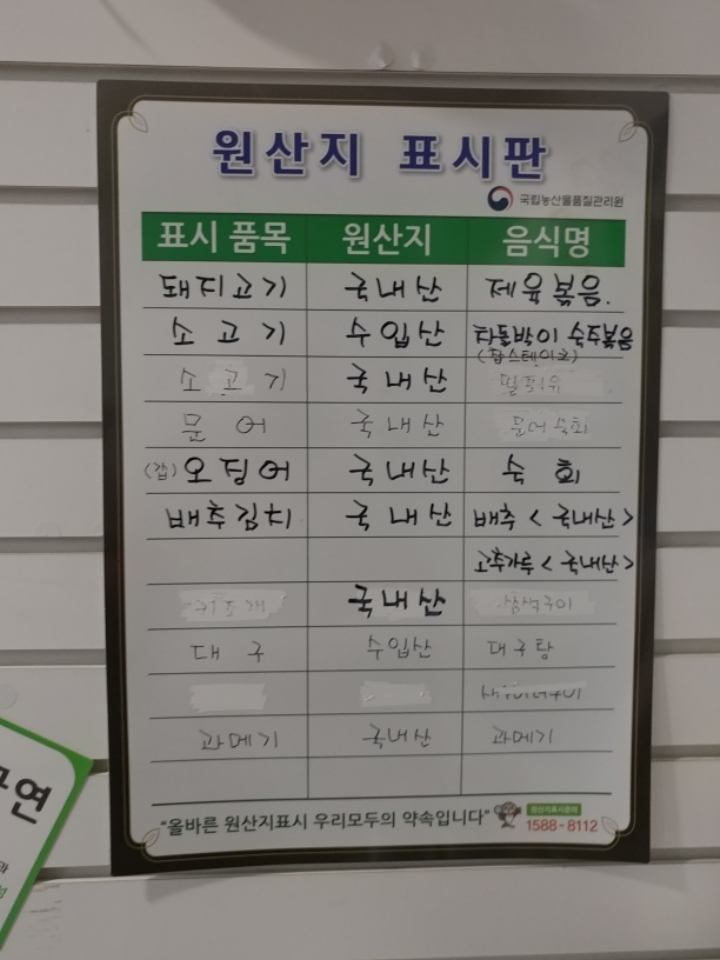 원산지 표시판
국립농산물품질관리원
표시 품목 원산지 음식명
돼지고기 국내산 제육볶음.
소고기 수입산 차돌박이 숙주볶음
(찹스테이크)
소고기 국내산
문어 국내산 문어숙회
(갑)오징어 국내산 숙회
배추김치 국내산 배추<국내산>
고추가루<국내산>
국내산
대구 수입산 대구탕
과메기 국내산 과메기
"올바른 원산지표시 우리모두의 약속입니다" 원산지표시문의
1588-8112
공연